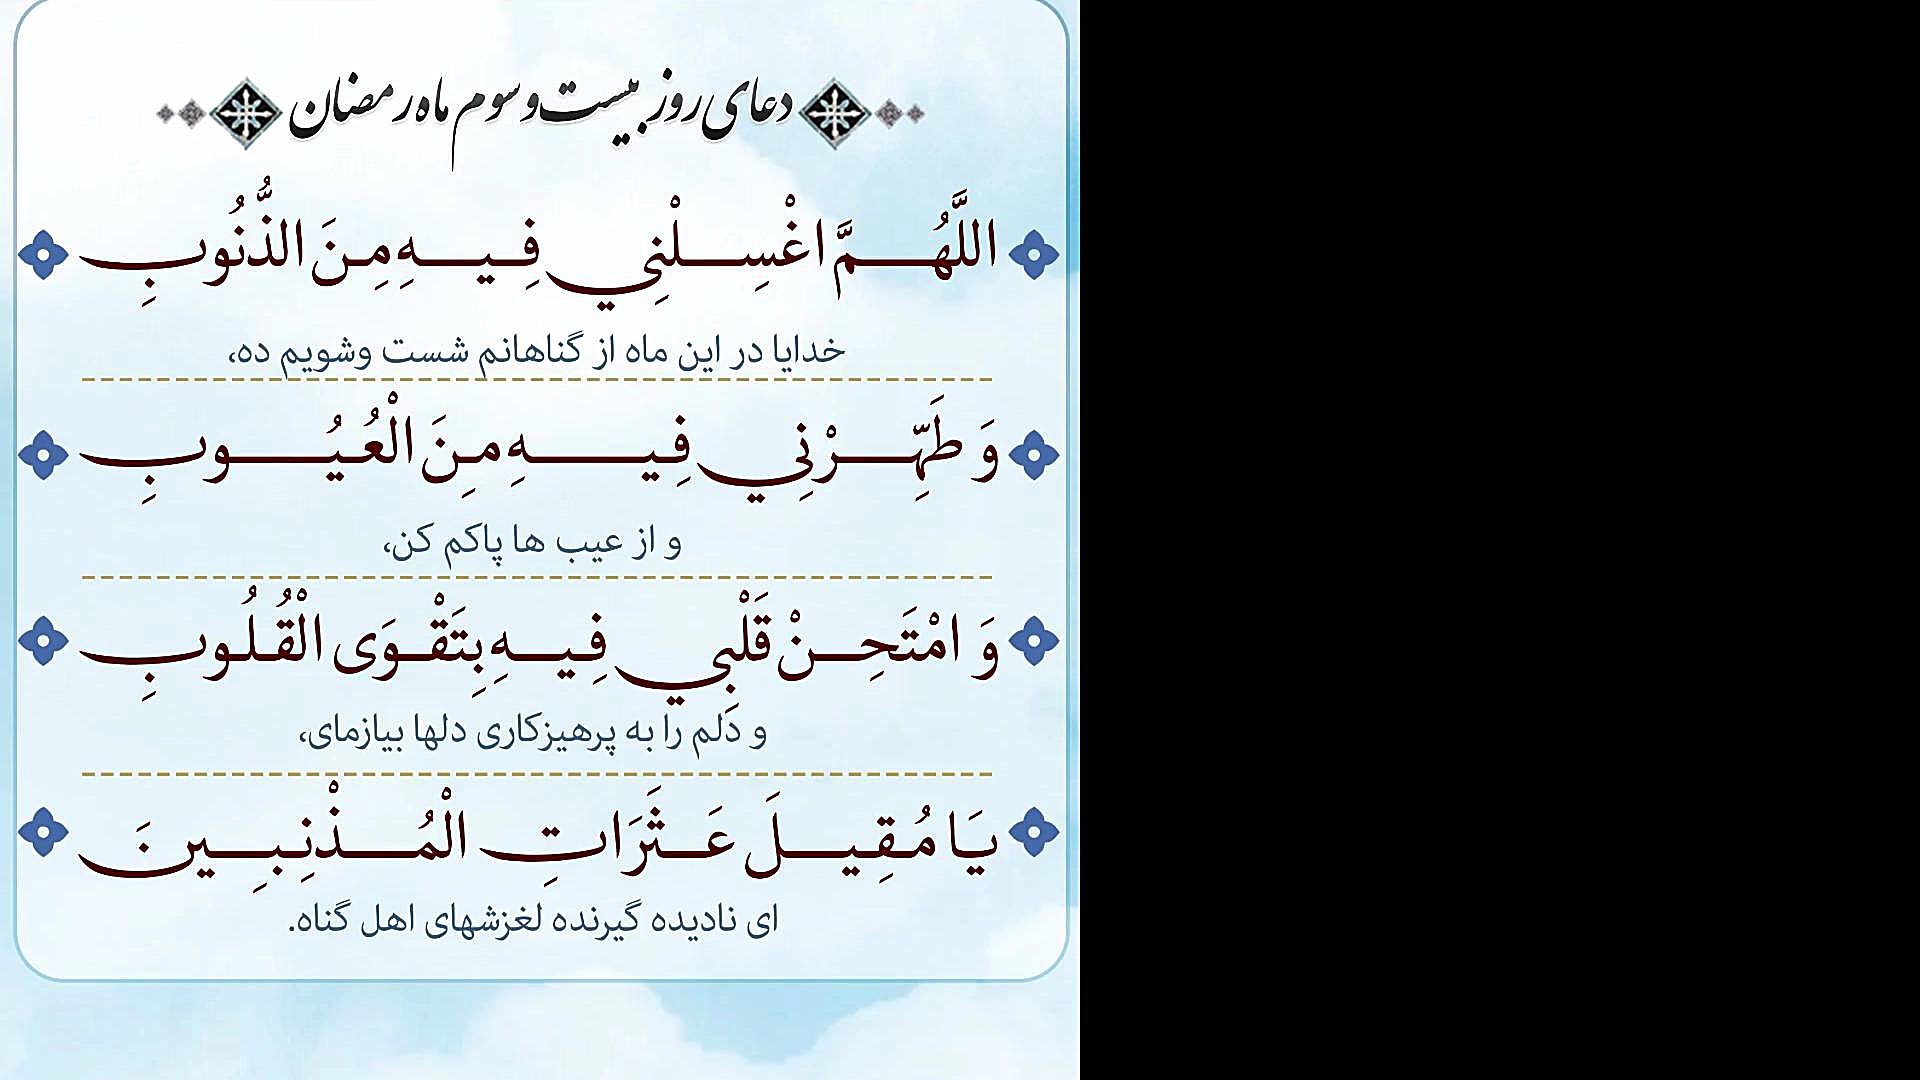 دعای روز بیست و سوم ماه رمضان
اللَّهُمَّ اغْسِلْنِي فِيهِ مِنَ الذُّنُوبِ
خدایا در این ماه از گناهانم شست وشویم ده،
وَ طَهِّرْنِي فِيهِ مِنَ الْعُيُوبِ
و از عیب ها پاکم کن،
وَ امْتَحِنْ قَلْبِي فِيهِ بِتَقْوَى الْقُلُوبِ
و دلم را به پرهیزکاری دلها بیازمای،
يَا مُقِيلَ عَثَرَاتِ الْمُذْنِبِينَ
ای نادیده گیرنده لغزشهای اهل گناه.